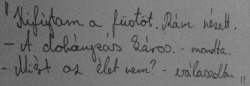 "Kifújtam a füstöt. Rám nézett.
- A dohányzás káros. - mondta.
- Miért az élet nem? - válaszoltam."